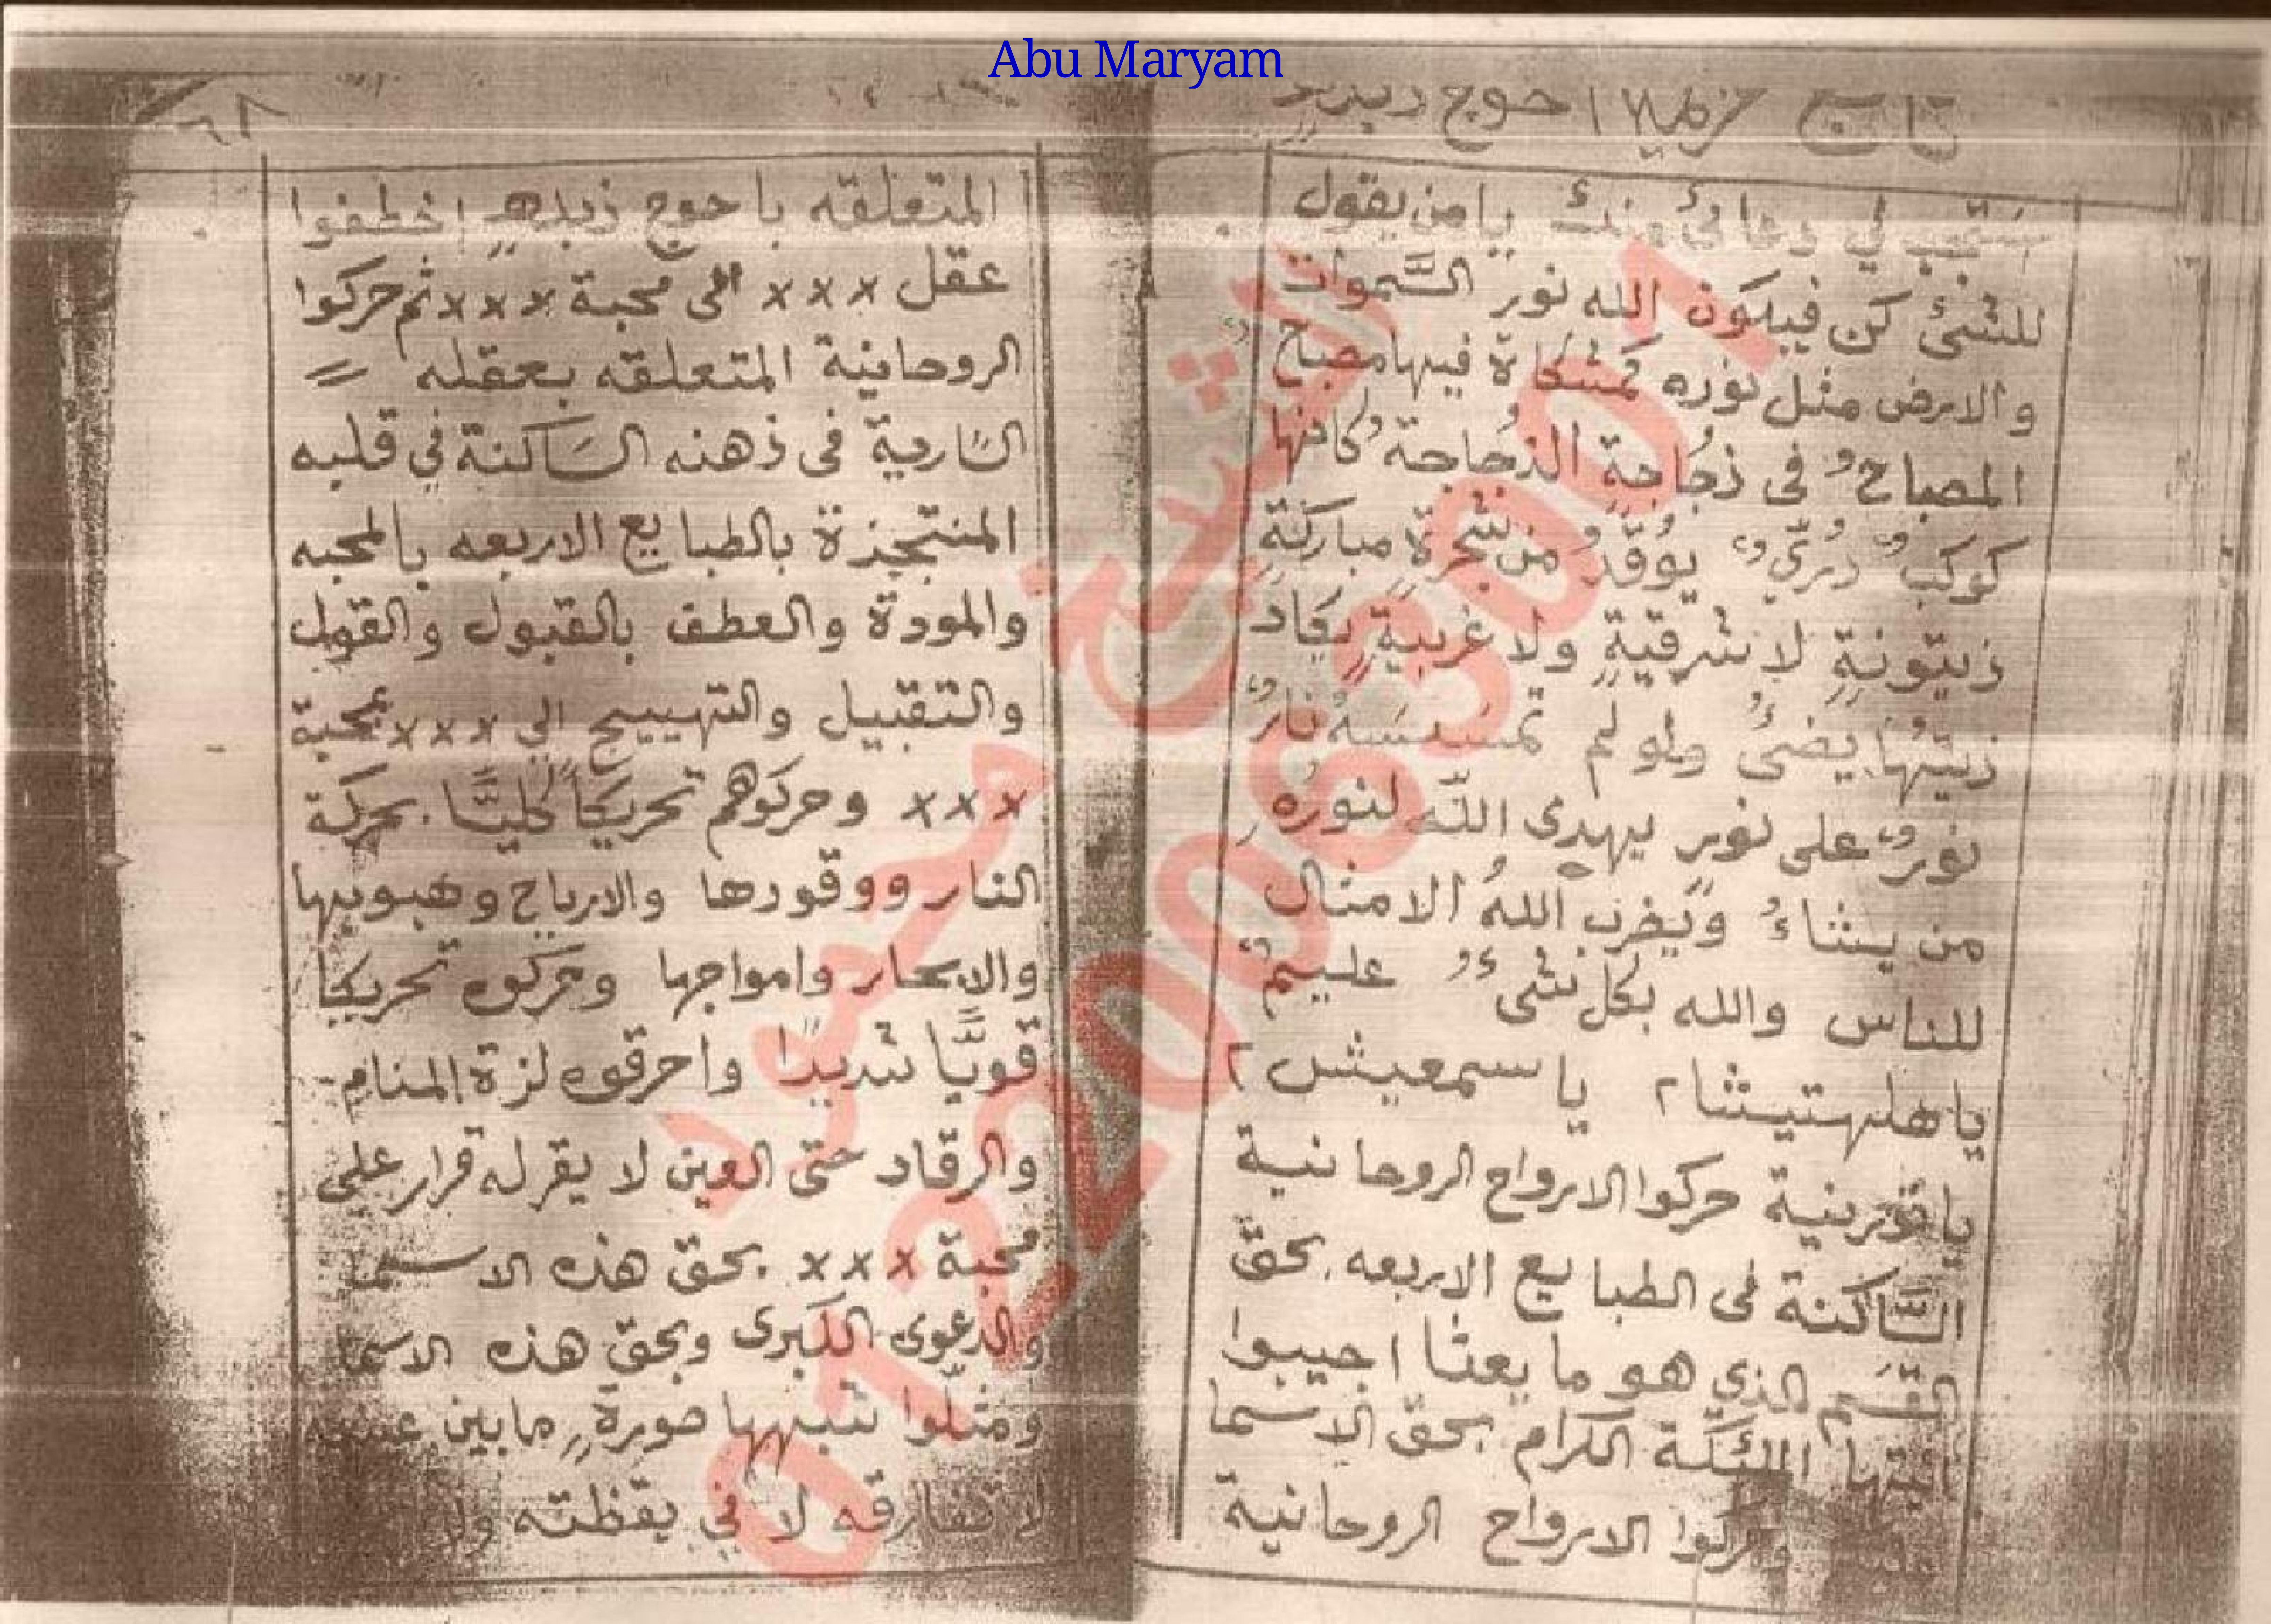 Abu Maryam
احوج زبدہ
استجب لي دعائي يا من يقول
للشئ كن فيكون الله نور السَّموات
والارض مثل نوره كمشكاة فيها مصباح
المصباحُ فى زجُاجةٍ الزجُاجةُ كانها
كوكبٌ دُرّيٌ يوُقدُ من شجرةٍ مباركةٍ
زيتونةٍ لا شرقيةٍ ولا غربيةٍ يكاد
زيتهُا يضئُ ولو لم تمسسهُ نارٌ
نورٌ على نورٍ يهدى اللّه لنوره
من يشاءُ ويضرب اللهُ الامثال
للناس والله بكل شئٍ عليمٌ
يا هلهتيشا ٢ يا سمعيش ٢
حركوا الارواح الروحانية
السَّاكنة فى الطبايع الاربعه بحقّ
القسَم الذي هو ما يعثا اجيبوا
ايتها الملئكة الكرام بحقّ الاسما
وحركوا الارواح الروحانية
المتعلقه باحوج زبدہ اخطفوا
عقل ××× الى محبة ××× ثم حركوا
الروحانية المتعلقه بعقله =
السَّارية فى ذهنه السَاكنة في قلبه
المنتجزة بالطبايع الاربعه بالمحبه
والمودة والعطف بالقبول والقول
والتقبيل والتهييج الي ××× بمحبة
××× وحركوهم تحريكاً كليَّا بحركة
النار ووقودها والارياح وهبوبها
والابحار وامواجها وحركوه تحريكا
قويَّا شديدا واحرقوه لزة المنام
والرقاد حتى العين لا يقر له قرار على
محبة ××× بحقّ هذه الاسما
والدعوى الكبرى وبحقّ هذه الاسما
ومثلّوا شبهها صورةٍ ما بين عينيه
لا تفارقه لا في يقظته ولا
الشيخ محمود
07220063001